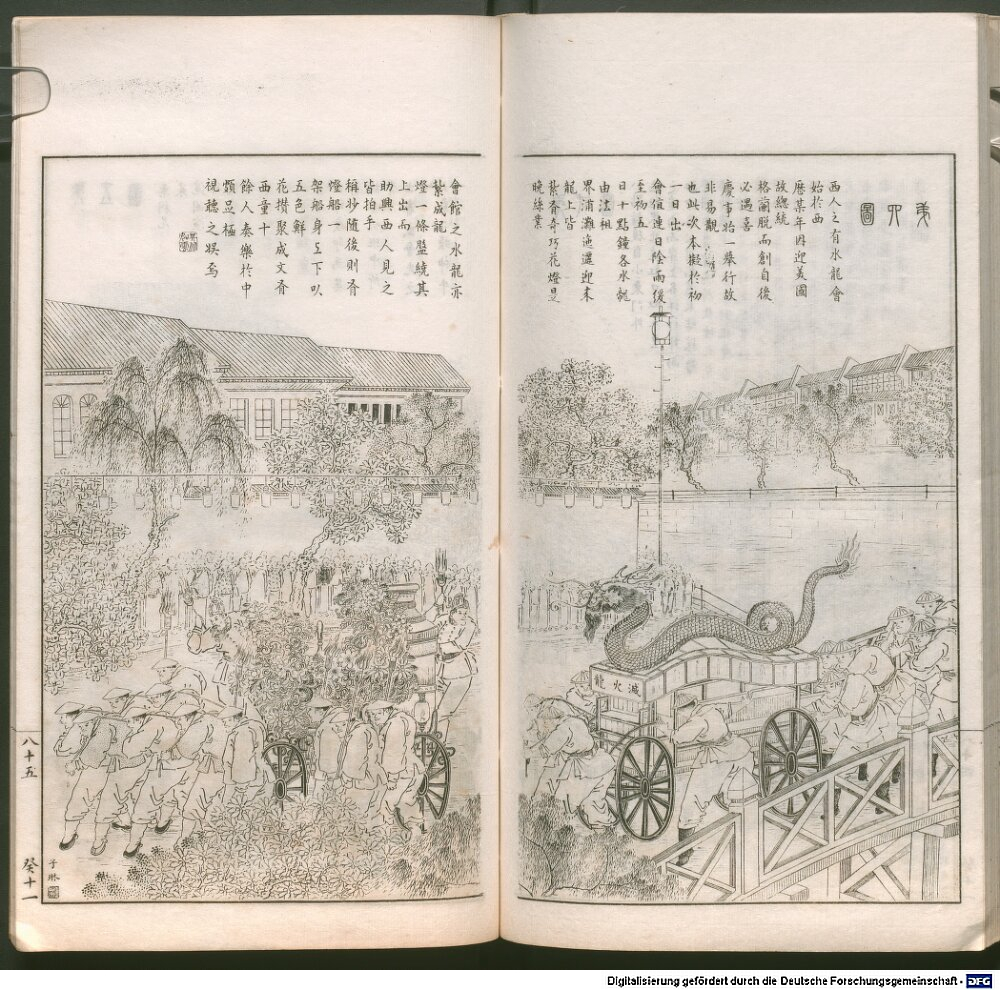 西人之有水龍會
始於西
曆某年因迎美國
故總統
格蘭脫而創自後
必遇喜
慶事始一舉行故
非易觀
也此次本擬於初
一日出
會值連日陰雨復
至初五
日十點鐘各水龍
由法租
界
龍上皆
紮奇奇巧巧花燈是
晚絲業
會館之水龍亦
紮成龍
燈一條盤繞其
上出而
助興西人見之
皆拍手
稱妙隨後則有
燈船一
架船身上下以
五色鮮
花攢聚成文有
西童十
餘人奏樂於中
頗足極
視聽之娛焉
滅火龍
八十五
癸十一
子琳
Digitalisierung gefördert durch die Deutsche Forschungsgemeinschaft - DFG